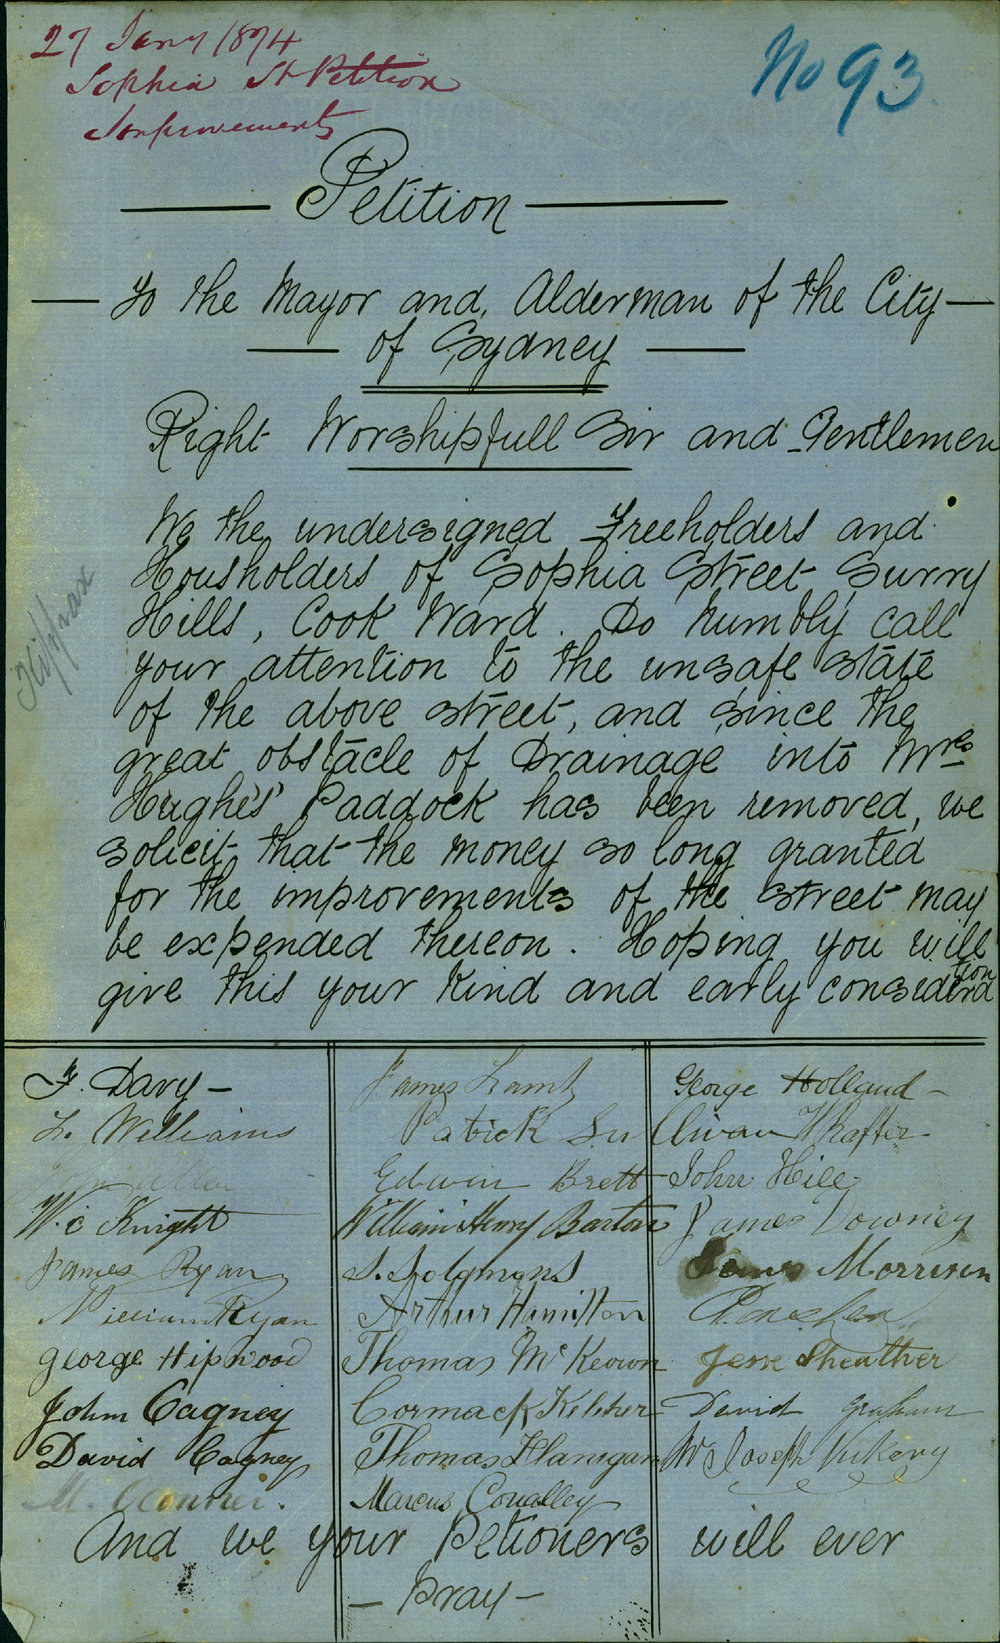 27 Jany 1874
Sophia St Petition
Improvements
No 93
Petition
To the Mayor and, Alderman of the City
of Sydney
Right Worshipfull Sir and Gentlemen
We the undersigned Freeholders and
Housholders of Sophia Street Surry
Hills, Cook Ward. Do humbly call
your attention to the unsafe state
of the above street, and since the
great obstacle of Drainage into Mrs
Hughes' Paddock has been removed, we
solicit that the money so long granted
for the improvements of the street may
be expended thereon. Hoping you will
give this your kind and early consideration
Hippax
F. Davy
L. Williams
W. C Knight
James Ryan
William Ryan
George Hipwood
John Cagney
David Cagney
M.
James Lamb
Patrick Sullivan
Edwin Brett
William Henry Barton
S. Solomons
Arthur Hamilton
Thomas McKeown
Cormack Keleher
Thomas Flanigan
Marcus Conalley
George Holland
W Rafter
John Hill
James Downey
James Morrison
Jesse Sheather
David Graham
Wm Joseph Vickery
And we your Petioners will ever
pray